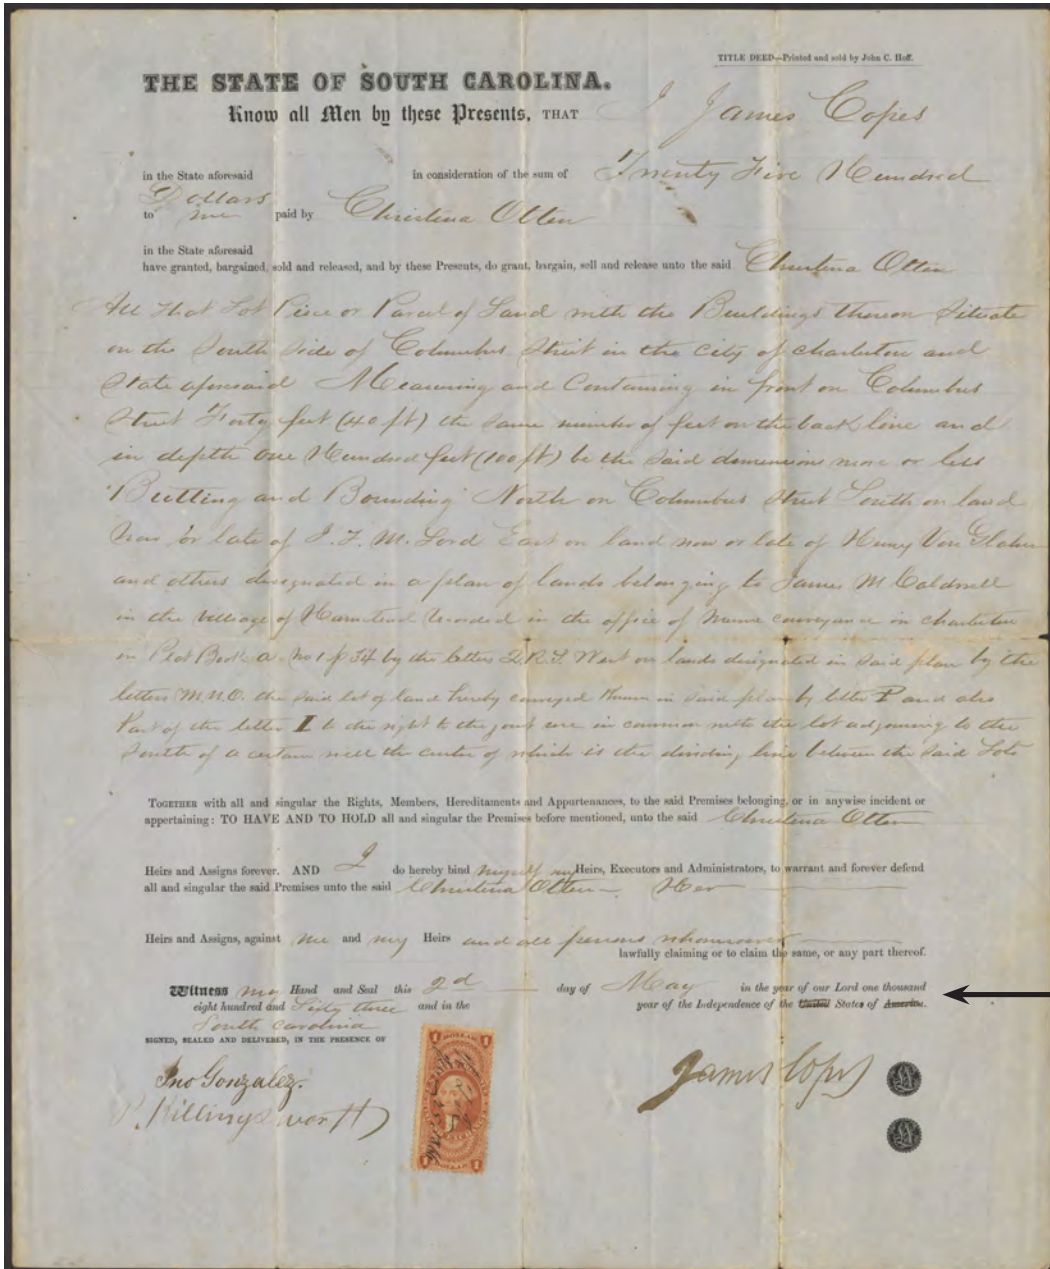 TITLE DEED—Printed and sold by John C. Hoff.
THE STATE OF SOUTH CAROLINA.
Know all Men by these Presents, THAT I James Copes
in the State aforesaid in consideration of the sum of Twenty Five Hundred
Dollars
to me paid by Christina Otten
in the State aforesaid
have granted, bargained, sold and released, and by these Presents, do grant, bargain, sell and release unto the said Christina Otten
All that Lot Piece or Parcel of Land with the Buildings thereon Situate
on the South Side of Columbus Street in the City of Charleston and
State aforesaid Measuring and Containing in front on Columbus
Street Forty feet (40 ft) the same number of feet on the back line and
in depth one Hundred feet (100 ft) be the said dimensions more or less
Butting and Bounding North on Columbus Street South on land
now or late of J. F. M. Lord East on land now or late of Henry Von Glahn
and others designated in a plan of lands belonging to James M Caldwell
in the village of Hamstead Recorded in the office of mesne conveyance in Charleston
in Plat Book a no 1 p 34 by the letters Q.R.S. West on lands designated in said plan by the
letters M.N.O. the said lot of land hereby conveyed Known in said plan by letter P and also
Part of the letter I to the right to the joint use in common with the lot adjoining to the
South of a certain well the center of which is the dividing line between the said Lots
TOGETHER with all and singular the Rights, Members, Hereditaments and Appurtenances, to the said Premises belonging, or in anywise incident or
appertaining: TO HAVE AND TO HOLD all and singular the Premises before mentioned, unto the said Christina Otten
Heirs and Assigns forever. AND I do hereby bind myself my Heirs, Executors and Administrators, to warrant and forever defend
all and singular the said Premises unto the said Christina Otten Her
Heirs and Assigns, against me and my Heirs and all persons whomsoever
lawfully claiming or to claim the same, or any part thereof.
Witness my Hand and Seal this 2d day of May in the year of our Lord one thousand
eight hundred and Sixty three and in the year of the Independence of the United States of America.
South Carolina
SIGNED, SEALED AND DELIVERED, IN THE PRESENCE OF
Jno Gonzalez.
P. Killingsworth
James Copes
1 DOLLAR 1
1 DOLLAR 1